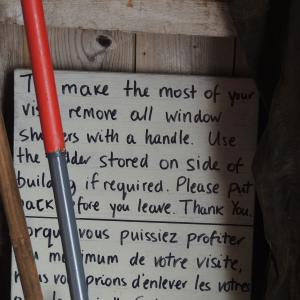 To make the most of your
visit remove all window
shutters with a handle. Use
the ladder stored on side of
building if required. Please put
back before you leave. Thank You.
Pour que vous puissiez profiter
au maximum de votre visite,
nous vous prions d'enlever les volets